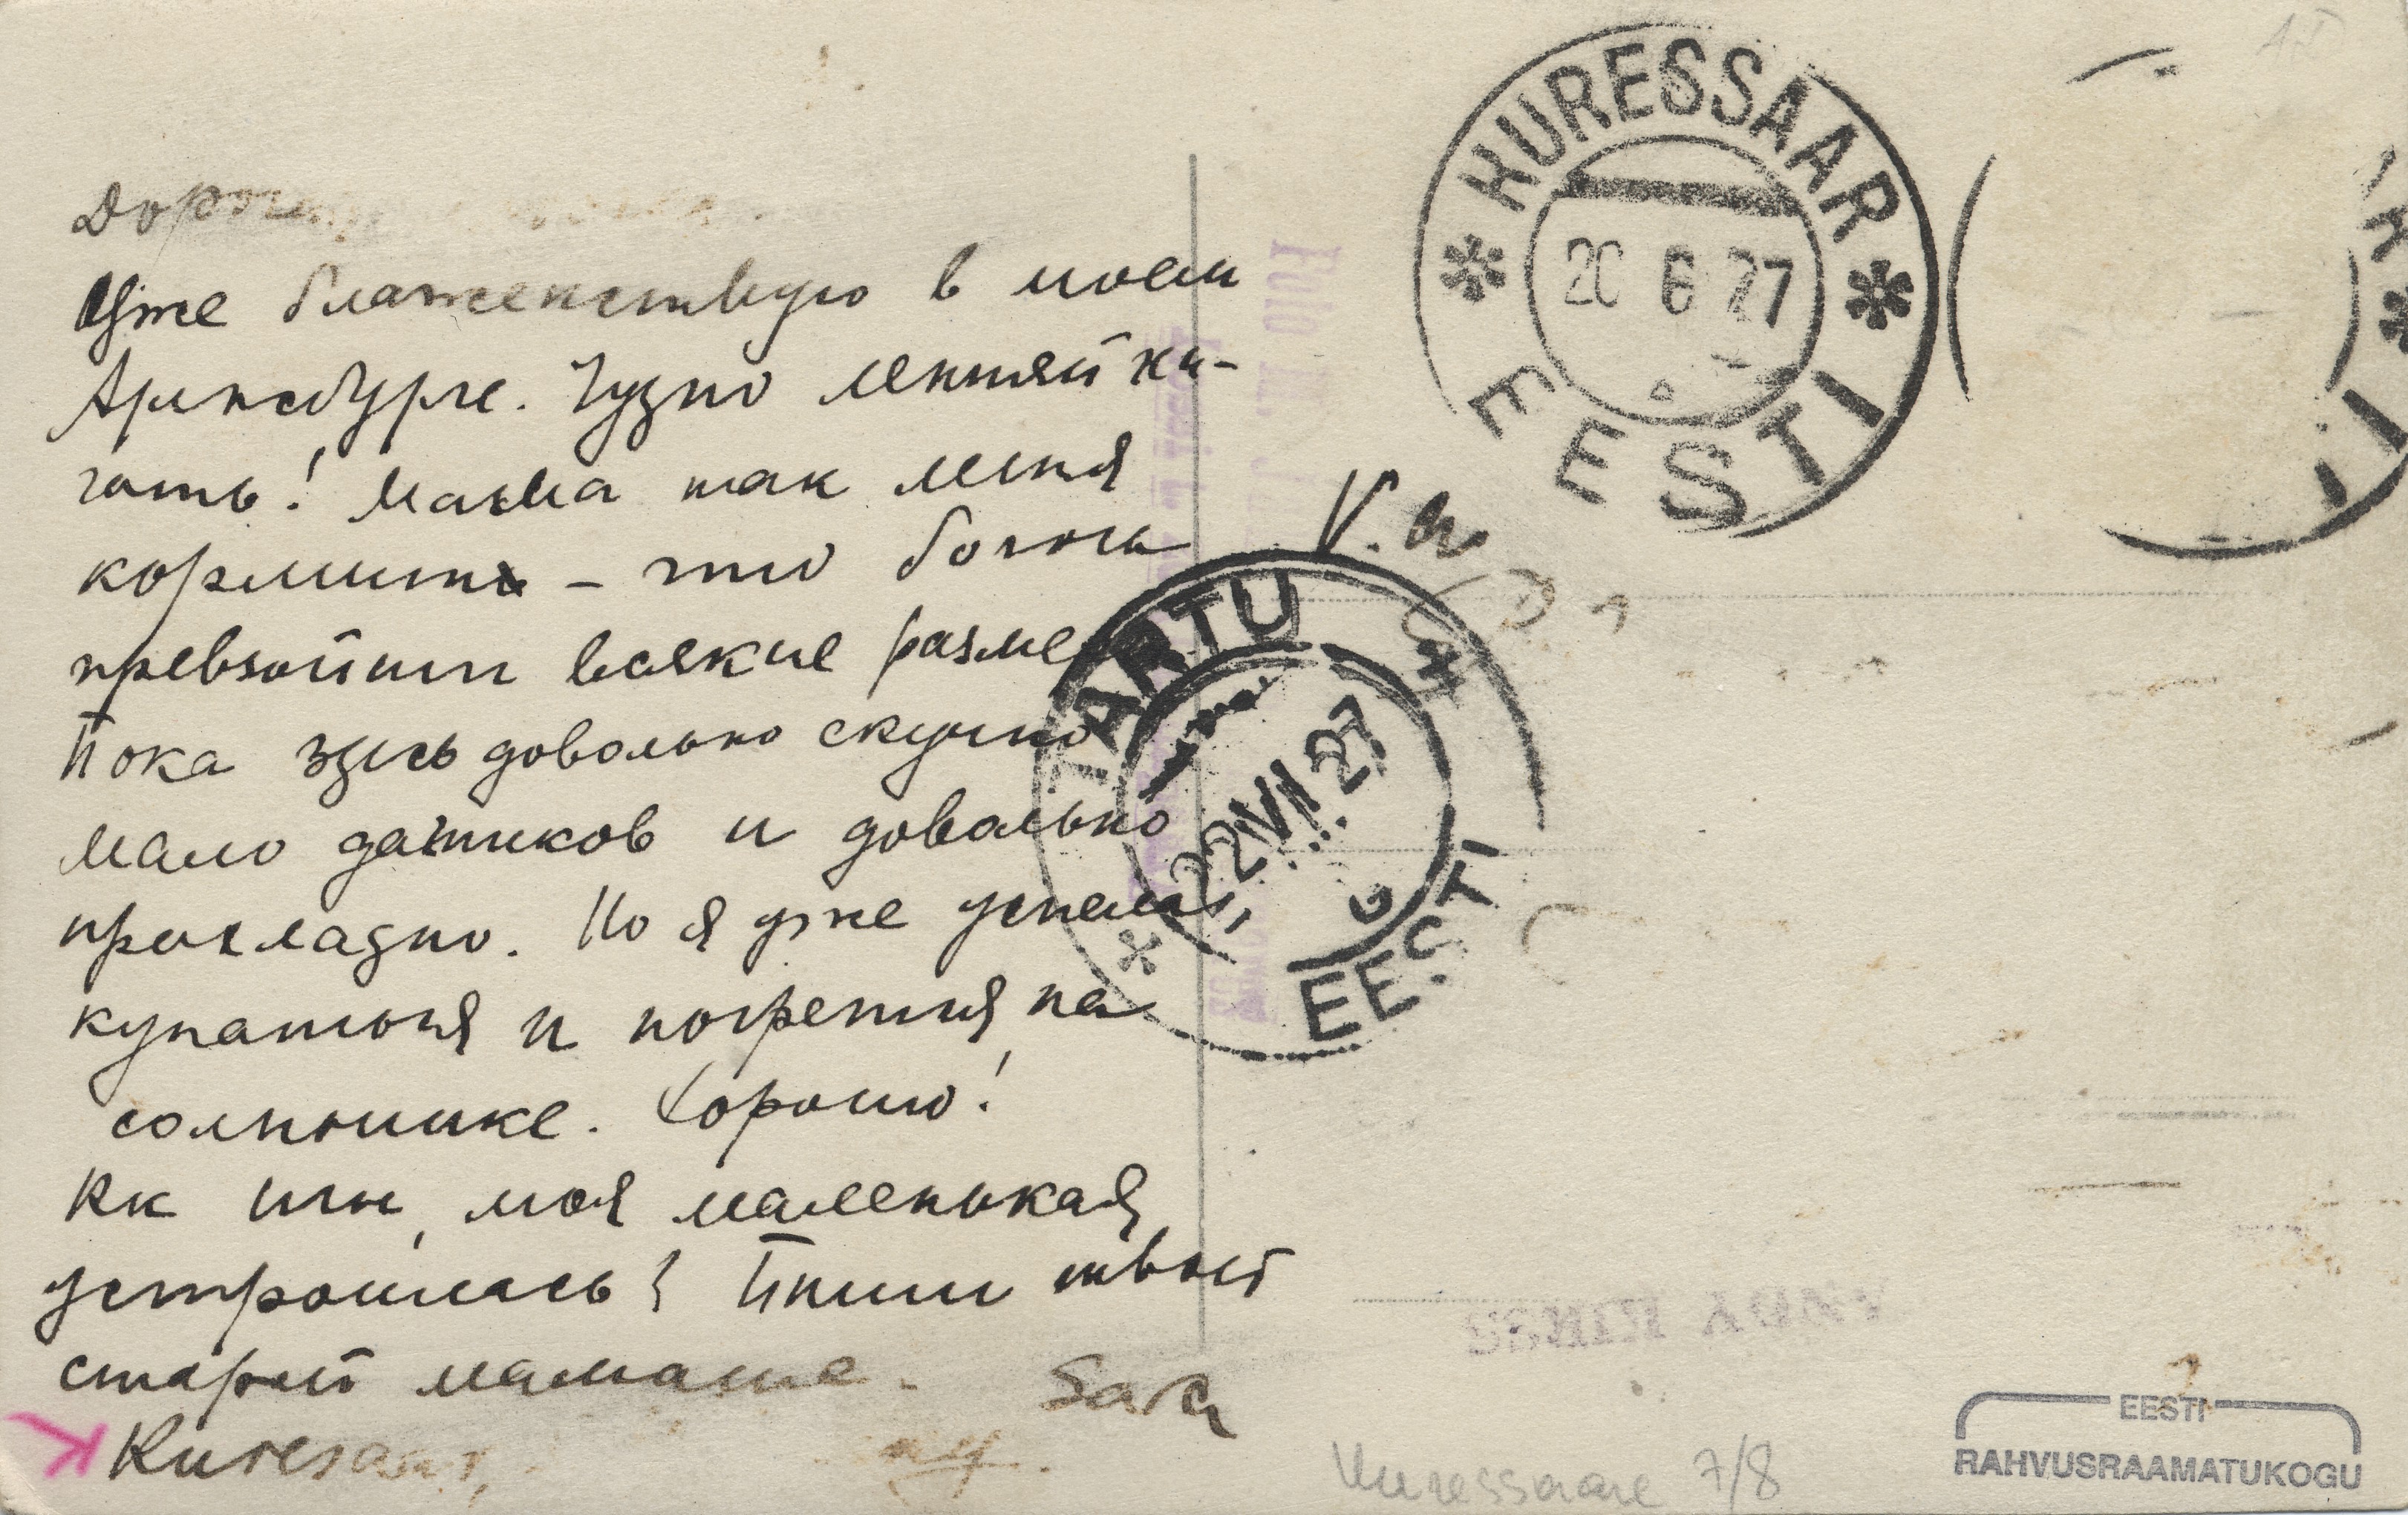 Уже блаженствую в моем
Аренсбурге. Чудно лентяйни-
чать! Мама так меня
кормит – что боюсь
превзойти всякие разме
Пока здесь довольно скучно
мало дачников и довольно
прохладно. Но я уже успела
купаться и погреться на
солнышке. Хорошо!
Как ты, моя маленькая,
устроилась? Пиши твоей
старой мамаше. Sara
Kuresaar,
KURESSAAR
20 6 27
EESTI
V. a.
TARTU
22 VI 27
EESTI
Kuressaare 7/8
EESTI
RAHVUSRAAMATUKOGU